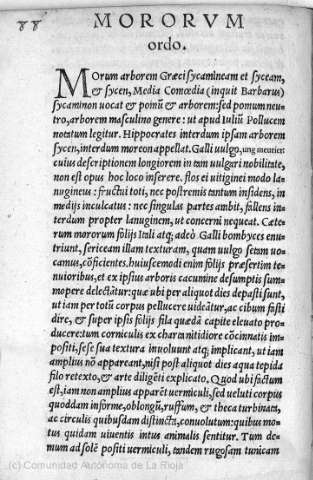 88
MORORVM
ordo.
Morum arborem Græci sycamineam et syceam,
& sycen, Media Comœdia (inquit Barbarus)
sycaminon uocat & pomũ & arborem: sed pomum neu-
tro, arborem masculino genere: ut apud Iuliũ Pollucem
notatum legitur. Hippocrates interdum ipsam arborem
sycen, interdum moreon appellat. Galli uulgo, ung meurier:
cuius descriptionem longiorem in tam uulgari nobilitate,
non est opus hoc loco inserere. flos ei uitiginei modo la-
nugineus: fructui toti, nec postremis tantum insidens, in
medijs inculcatus: nec singulas partes ambit, fallens in-
terdum propter lanuginem, ut concerni nequeat. Cæte-
rum mororum folijs Itali atq; adeò Galli bombyces enu-
triunt, sericeam illam texturam, quam uulgo setam uo-
camus, cõficientes. huiuscemodi enim folijs præsertim te-
nuioribus, et ex ipsius arboris cacumine desumptis sum-
mopere delectãtur: quæ ubi per aliquot dies depasti sunt,
ut iam per totũ corpus pellucere uideãtur, ac cibum fasti
dire, & super ipsis folijs fila quædã capite eleuato pro-
ducere: tum corniculis ex charta nitidiore cõcinnatis im-
positi, sese sua textura inuoluunt atq; implicant, ut iam
amplius nõ appareant, nisi post aliquot dies aqua tepida
filo retexto, & arte diligẽti explicato. Quod ubi factum
est, iam non amplius apparẽt uermiculi, sed ueluti corpus
quoddam informe, oblongũ, ruffum, & theca turbinata,
ac circulis quibusdam distincta, conuolutum: quibus mo-
tus quidam uiuentis intus animalis sentitur. Tum de-
mum ad solẽ positi uermiculi, tandem rugosam tunicam
(c) Comunidad Autónoma de La Rioja